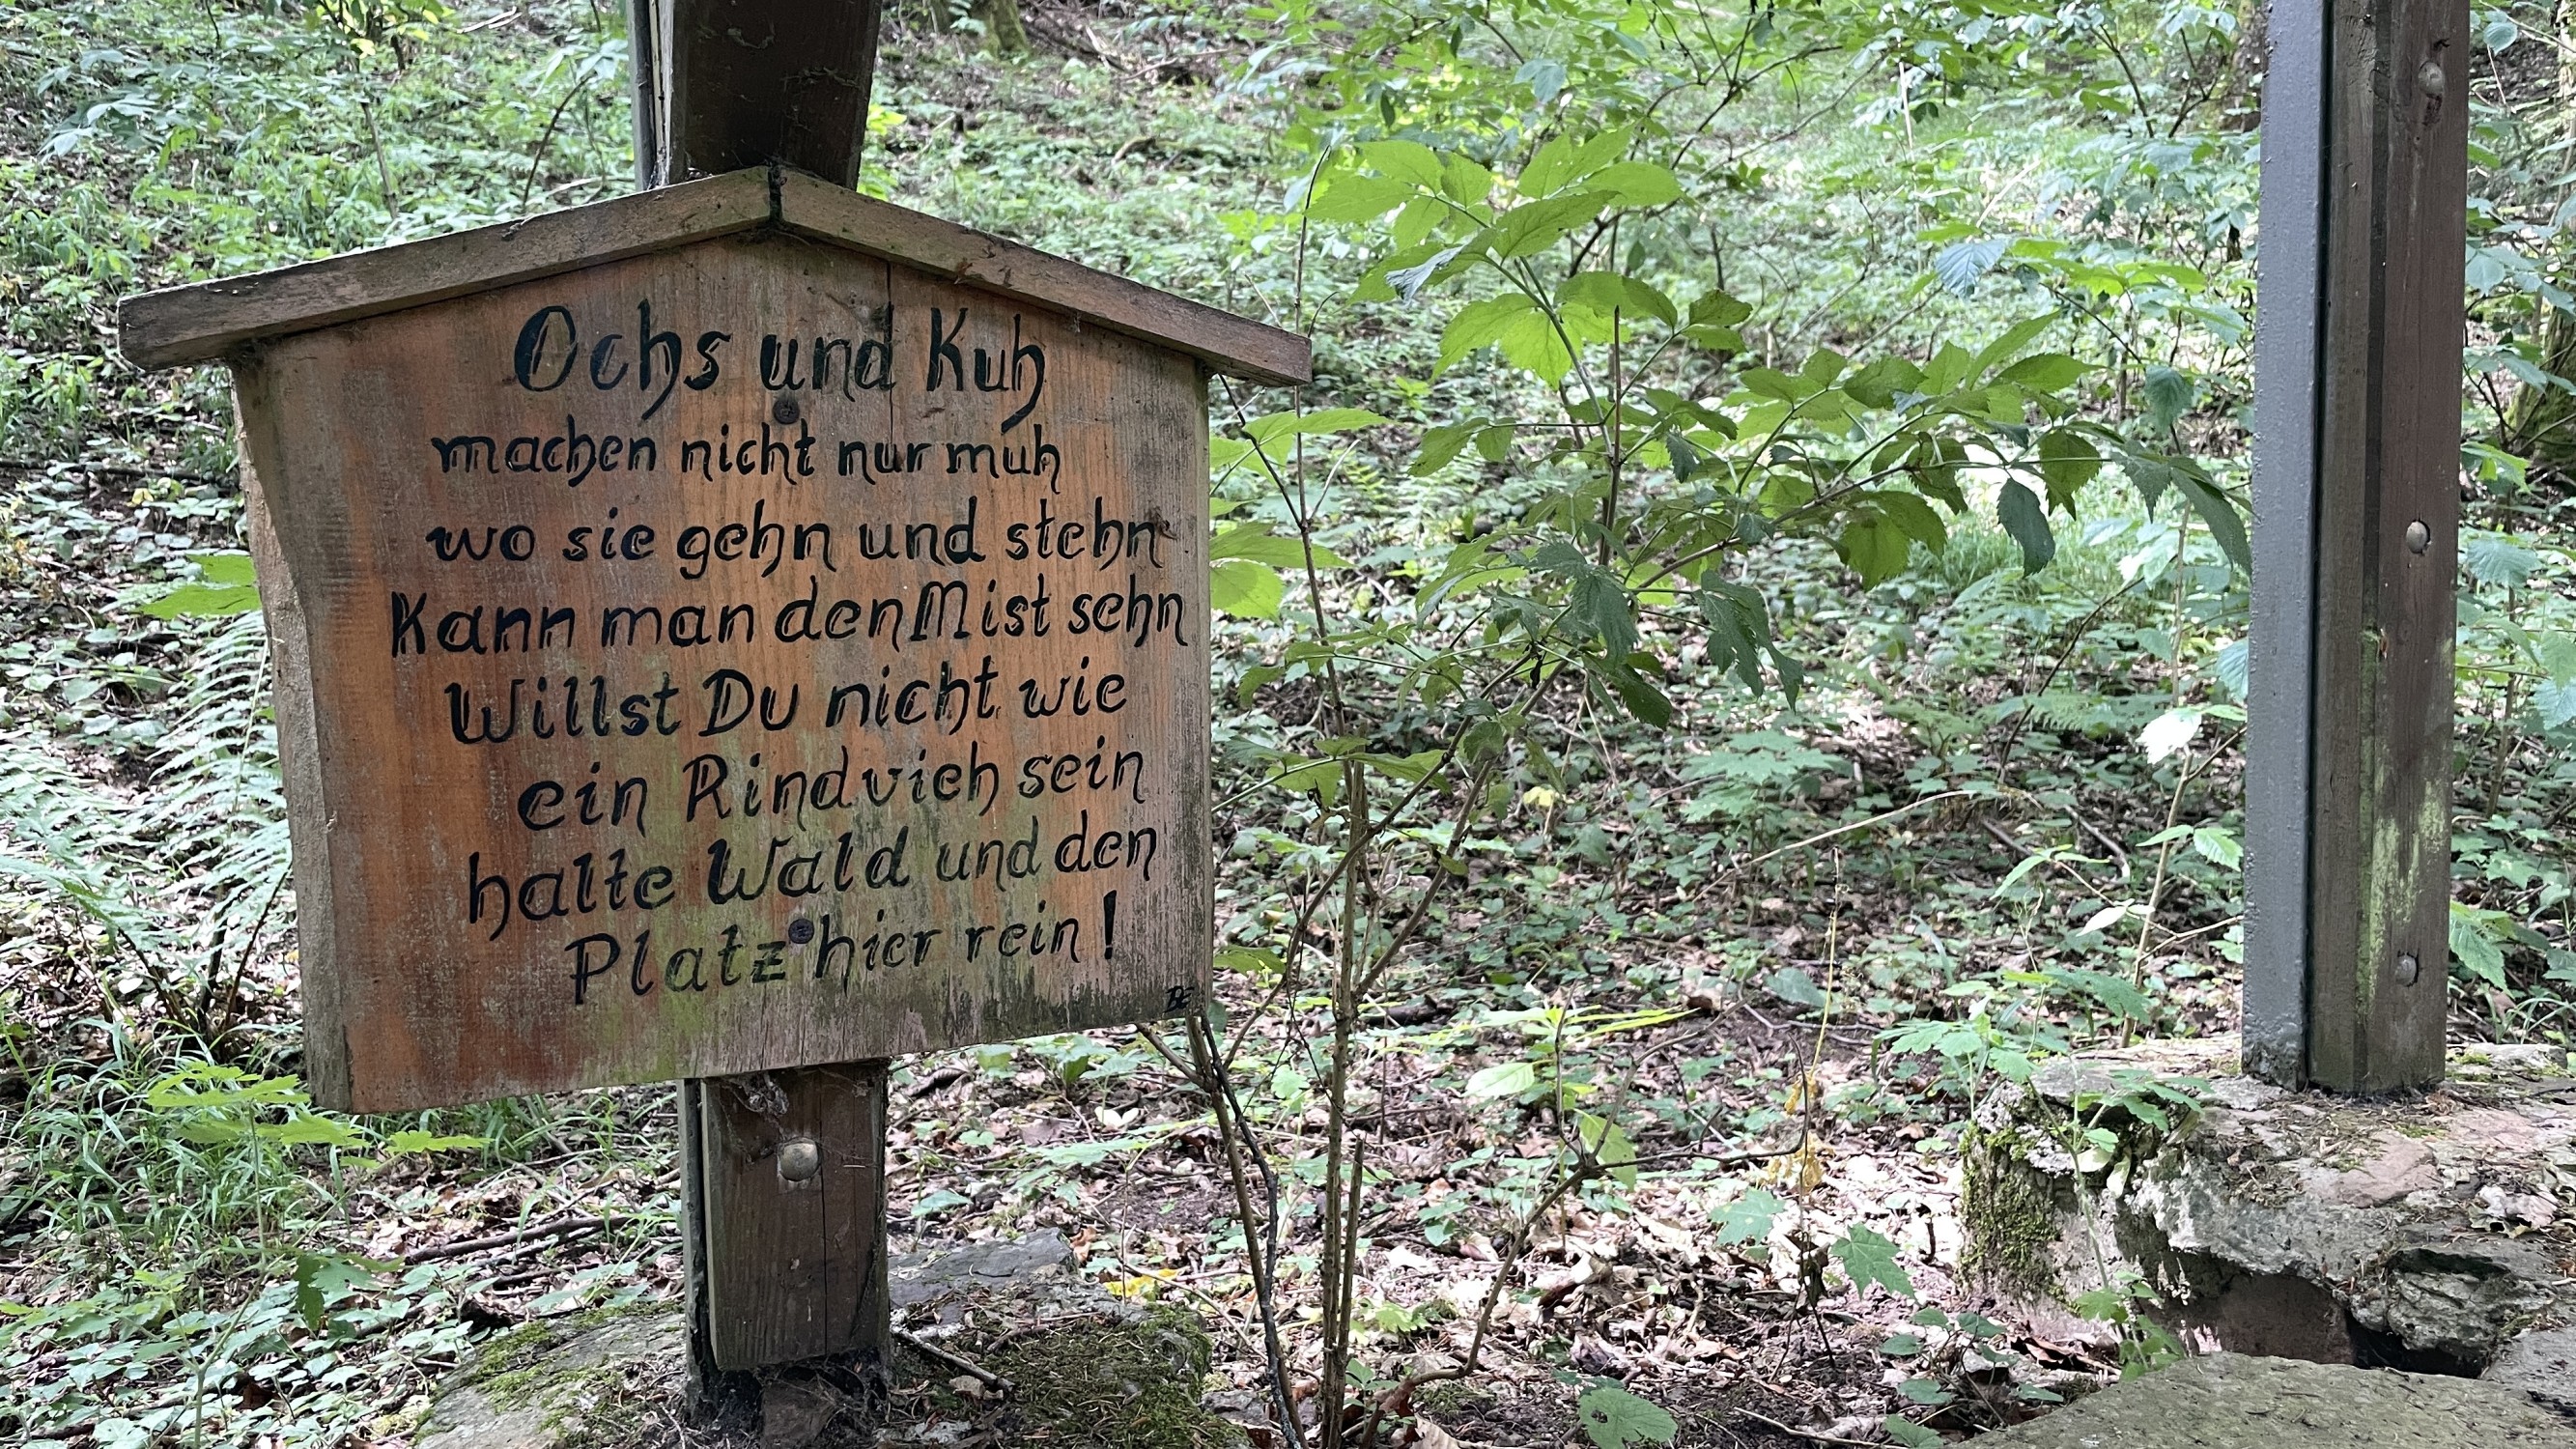 Ochs und Kuh
machen nicht nur muh
wo sie gehn und stehn
Kann man den Mist sehn
Willst Du nicht wie
ein Rindvieh sein
halte Wald und den
Platz hier rein!
BE